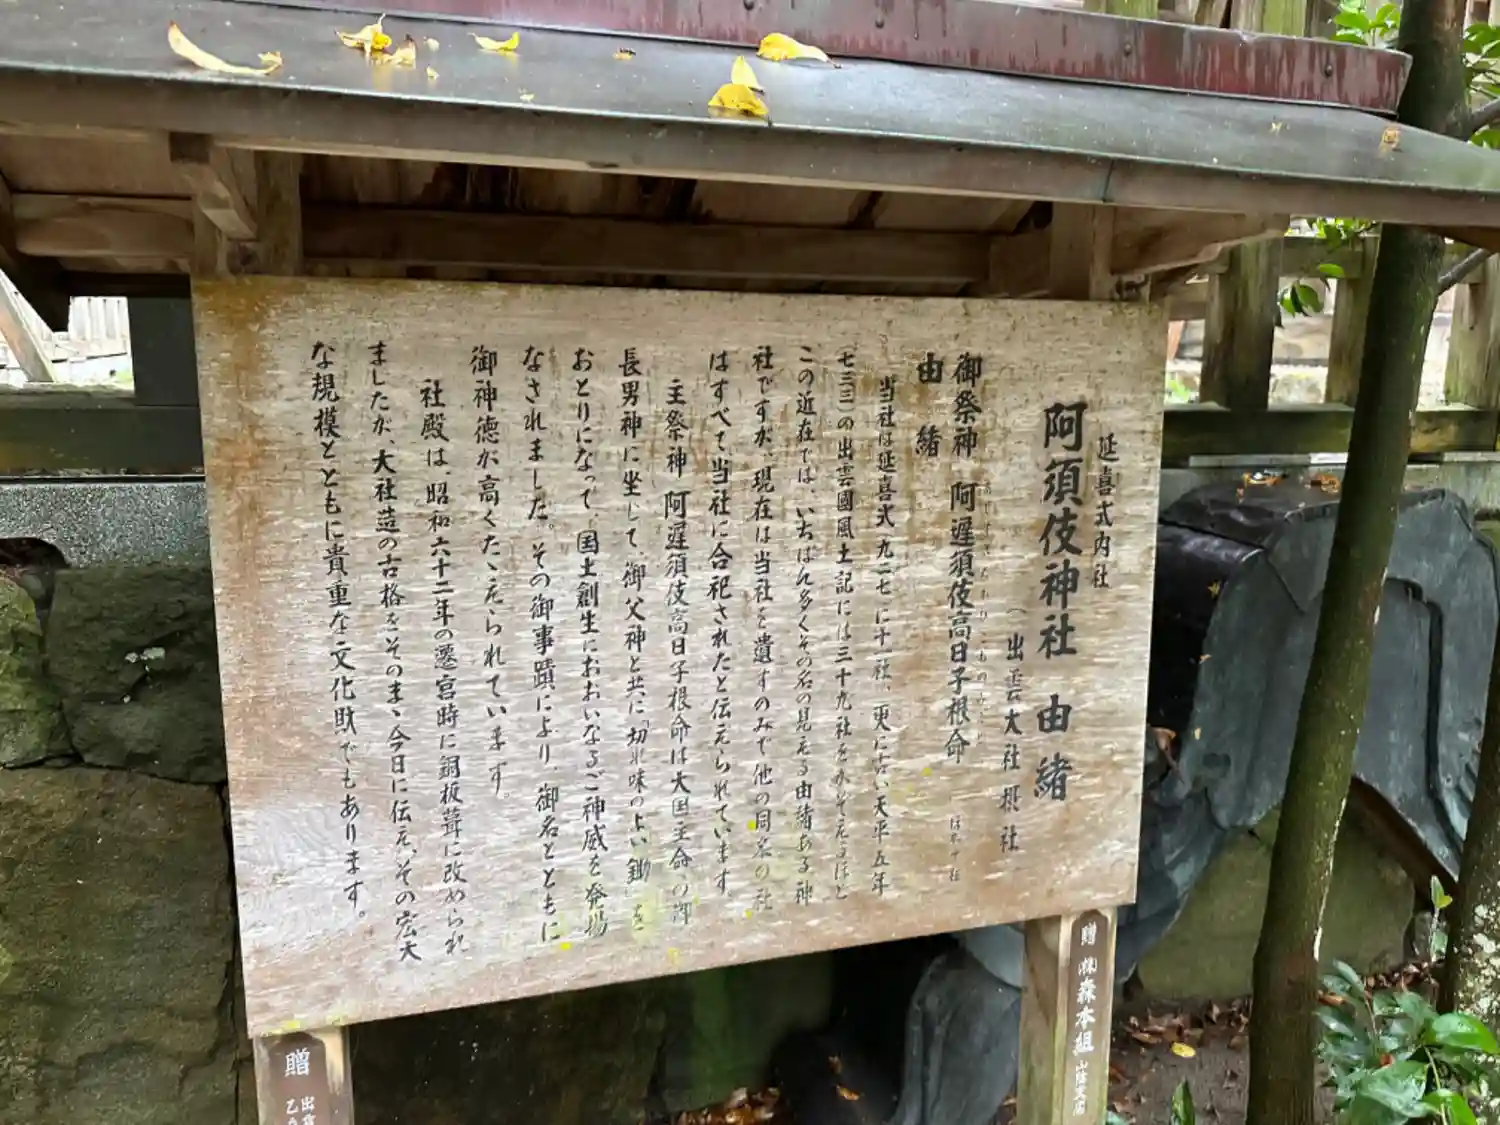 延喜式内社
阿須伎神社 由緒
(出雲大社摂社
御祭神 阿遅須伎高日子根命 ほか十社
由緒
当社は延喜式(九二七)に十一社、更に古い天平五年
(七三三)の出雲國風土記には三十九社をかぞえるほど
この近在では、いちばん多くその名の見える由緒ある神
社ですが、現在は当社を遺すのみで他の同名の社
はすべて当社に合祀されたと伝えられています。
主祭神 阿遅須伎高日子根命は大国主命の御
長男神に坐して、御父神と共に「切れ味の上い鋤」を
おとりになって、国土創生におおいなるご神威を発揚
なされました。その御事蹟により、御名とともに
御神徳が高くたゝえられています。
社殿は、昭和六十二年の遷宮時に銅板葺に改められ
ましたが、大社造の古格をそのまゝ今日に伝え、その宏大
な規模とともに貴重な文化財でもあります。
贈 ㈱森本組 山陰支店
贈